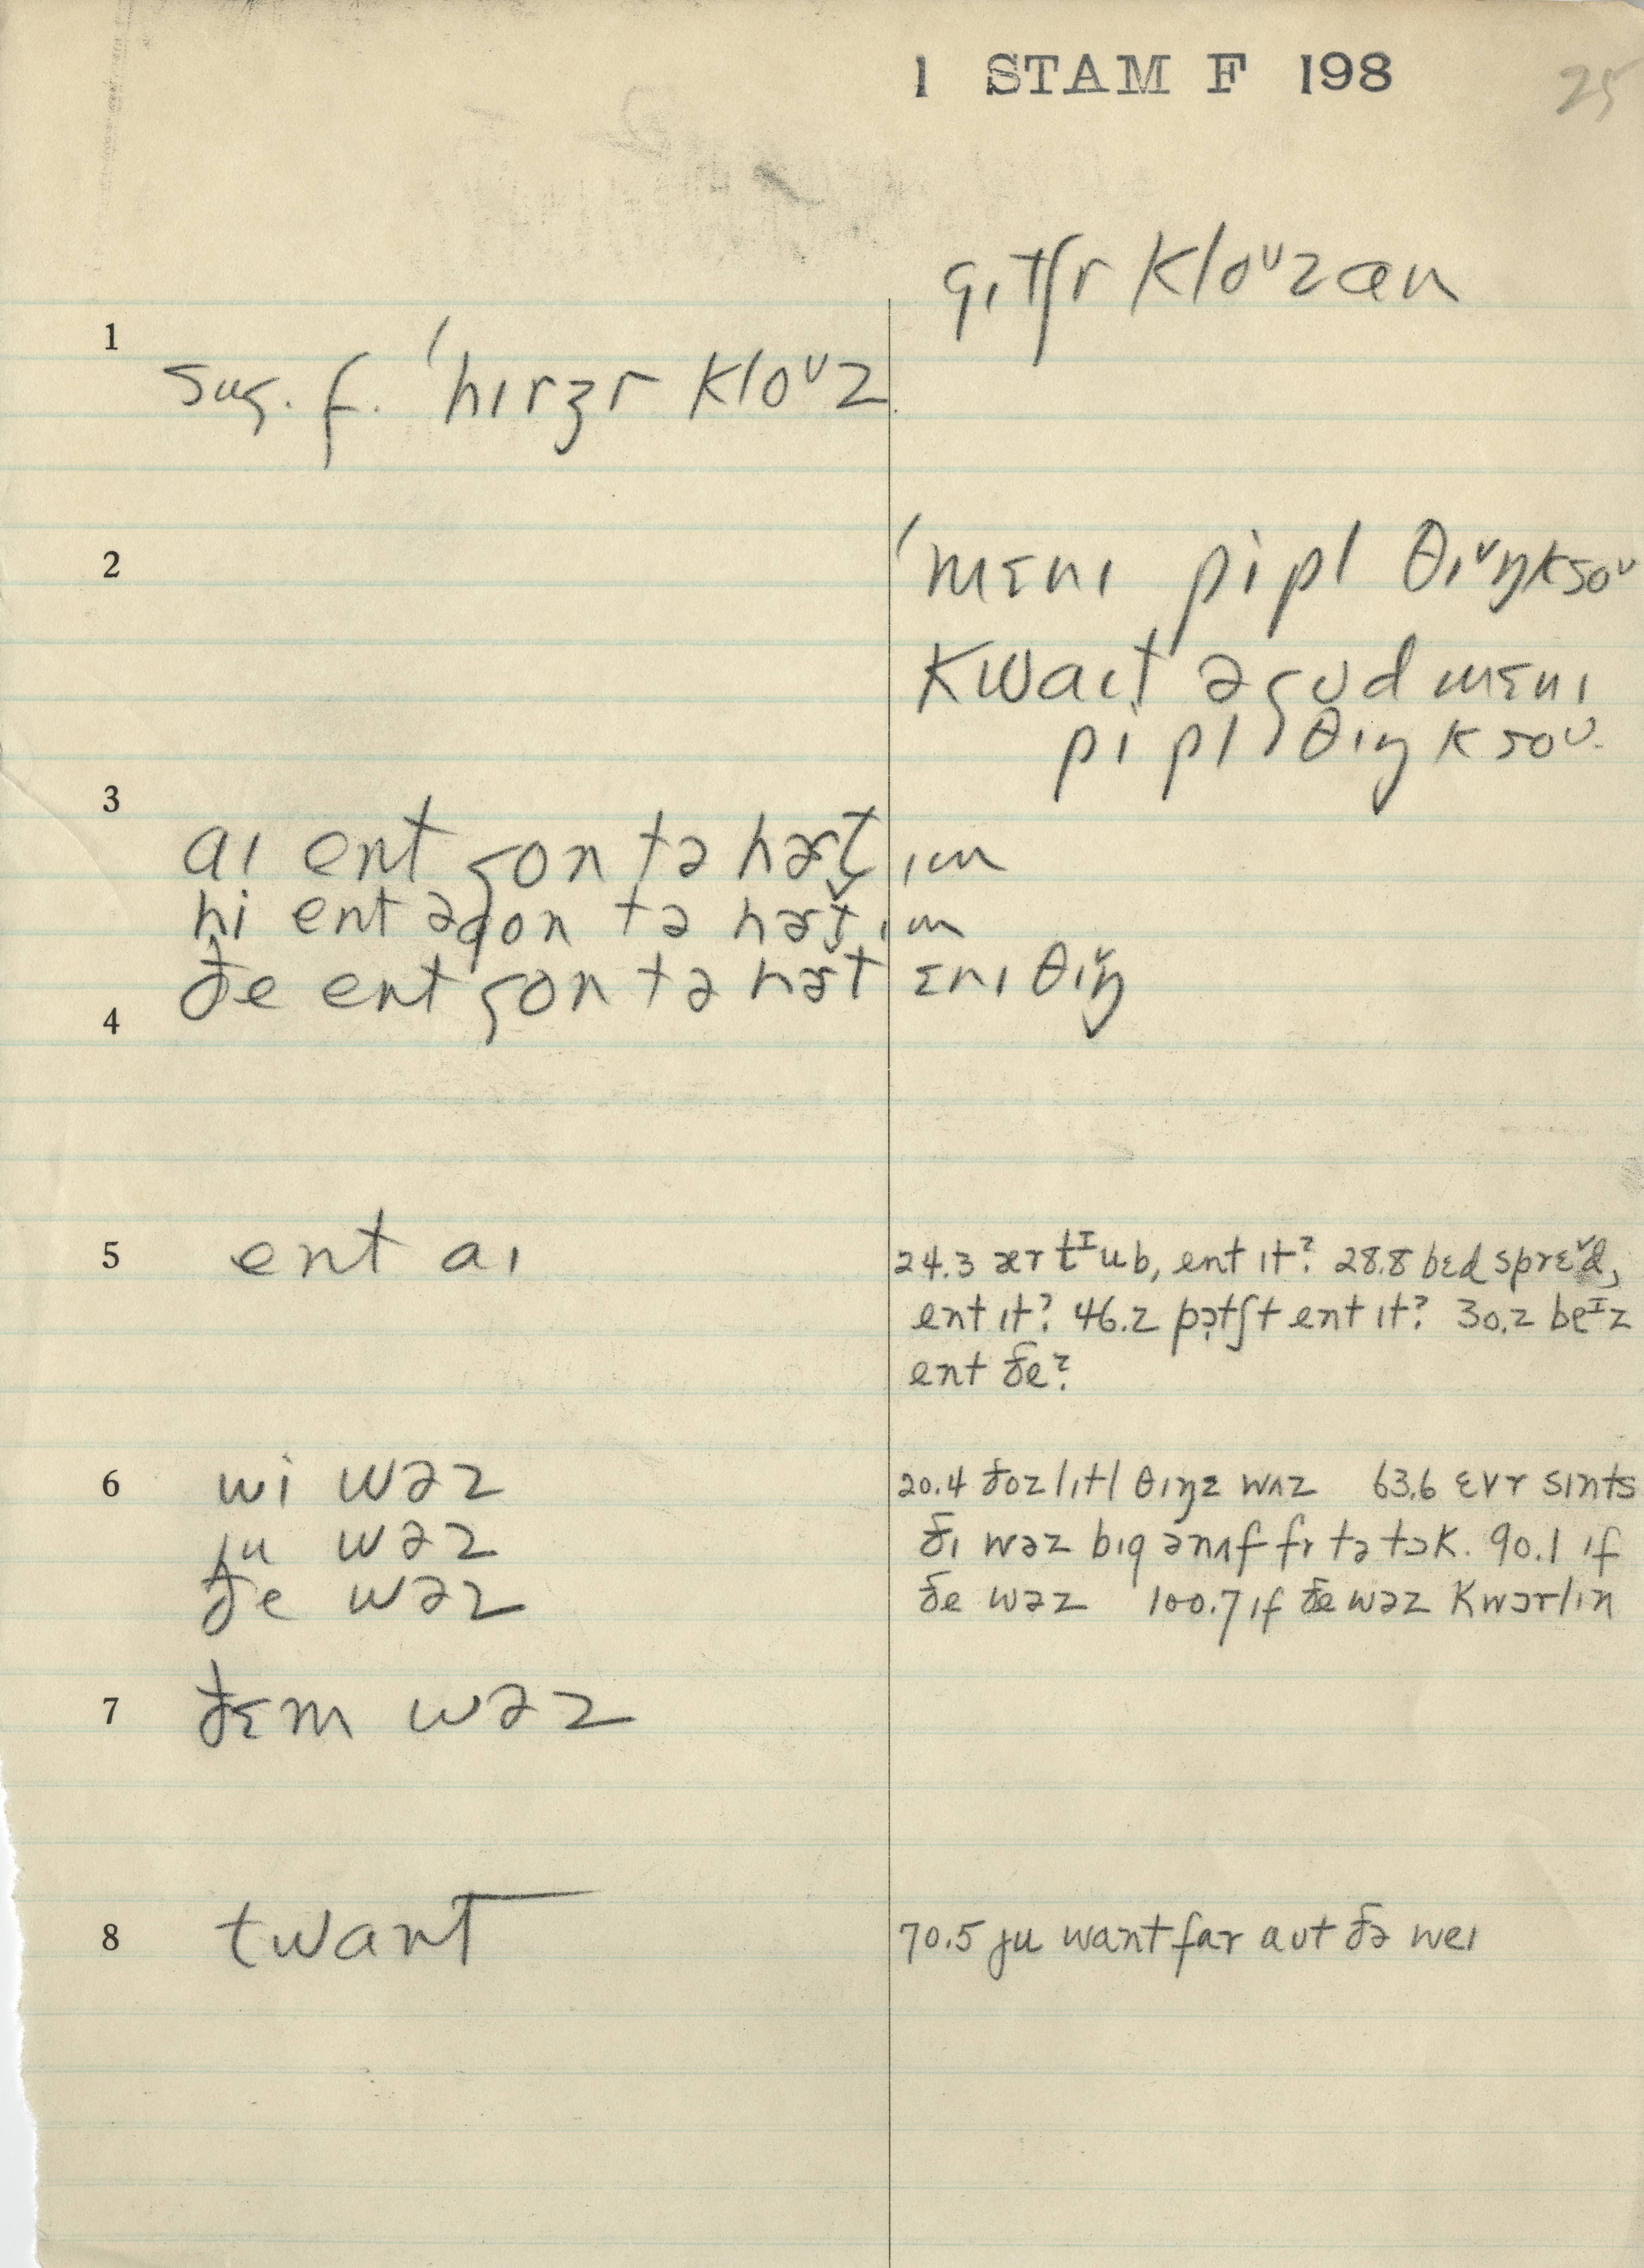 1 STAM F 198
25
gɪtʃr kloᶷzɑn
1
sug. f. ˈhɪrzr kloᶷz
2
ˈmɛnɪ pipl θɪ˅ŋksoᶷ
kwaɪt əgʊd mɛnɪ
pipl θɪŋksoᶷ
3
aɪ ent gon tə hɚt̬ ɪm
hi ent əgon tə hɚt̬ ɪm
ðe ent gon tə hɚt ɛnɪ θɪ˅ŋ
4
5
ent aɪ
24.3 ɚr tᴵub, ent ɪt? 28.8 bɛd sprɛ˅d,
ent ɪt? 46.2 pɔtʃt ent ɪt? 30.2 beᴵz
ent ðe?
6
wi wəz
ju wəz
ðe wəz
20.4 ðoz lɪtl θɪŋz wʌz 63.6 ɛvr sɪnts
ðɪ wəz bɪg ənʌf fr tə tɔk. 90.1 ɪf
ðe wəz 100.7 ɪf ðe wəz kwɔrlɪn
7
ðɛm wəz
8
twant
70.5 ju want far aʊt ðə weɪ